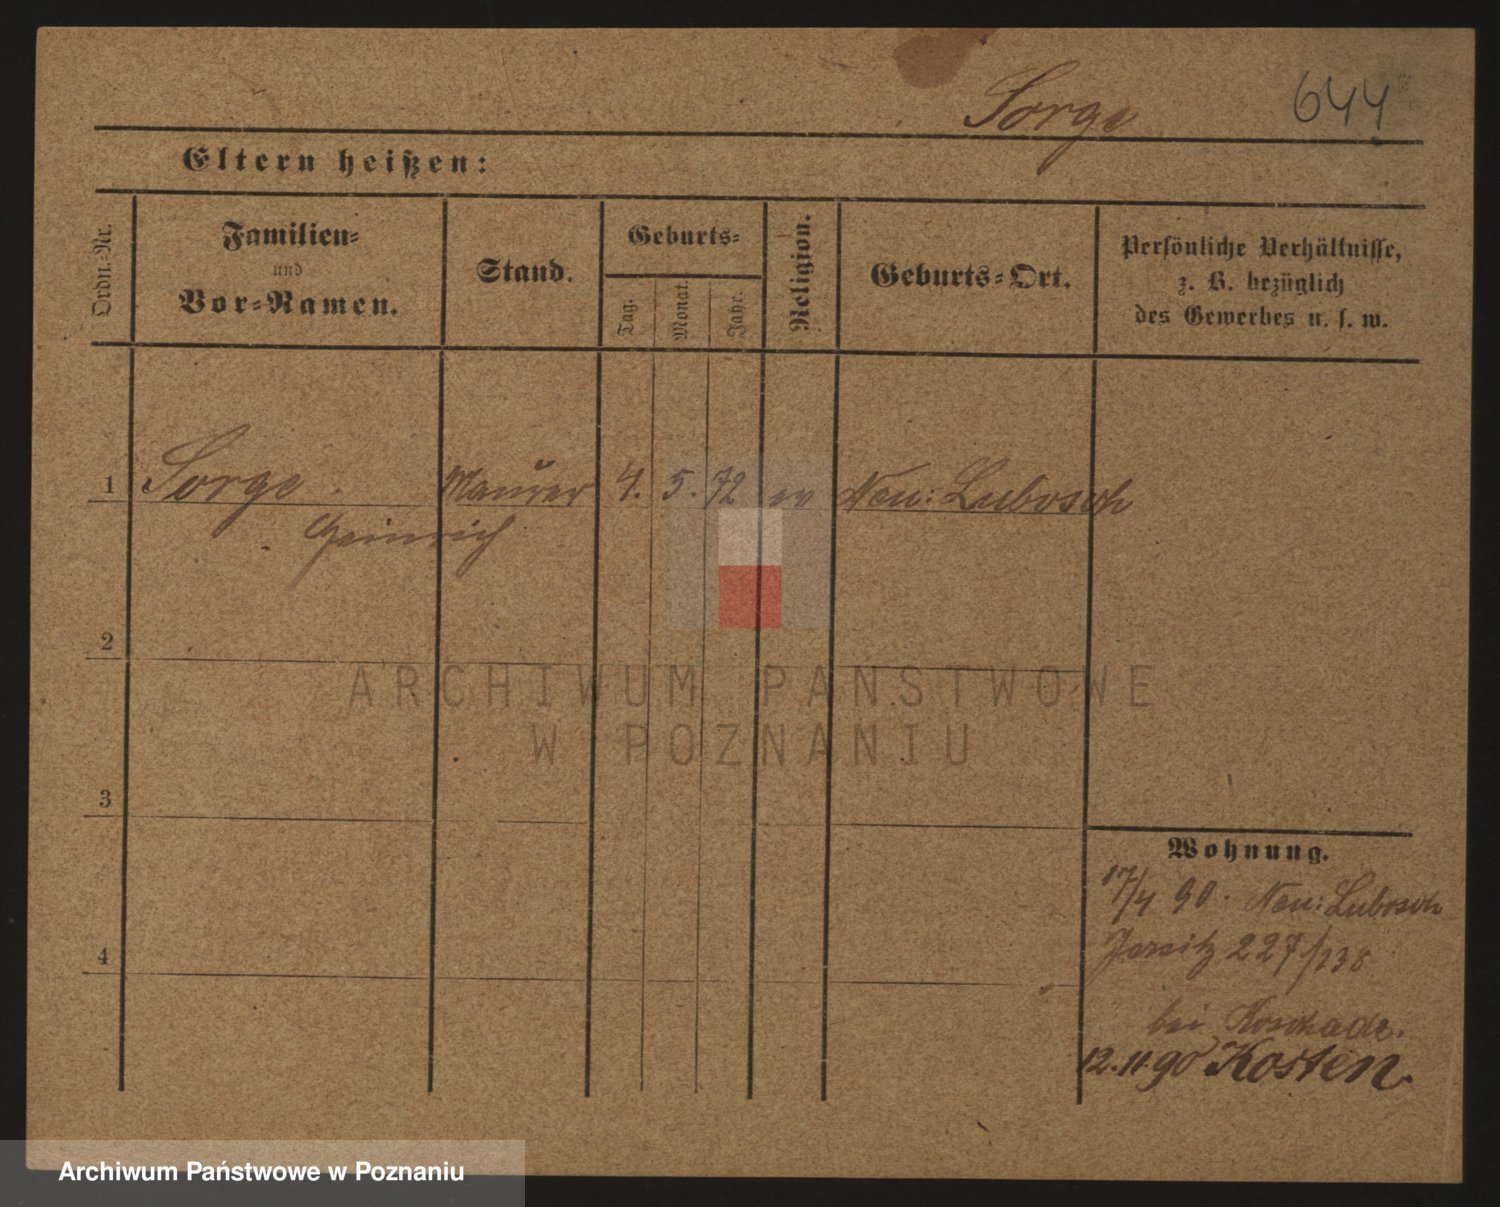 Sorge 644
Eltern heißen:
Ordn.-Nr.
Familien-
und
Vor-Namen.
Stand.
Geburts-
Tag.
Monat.
Jahr.
Religion.
Geburts-Ort.
Persönliche Verhältnisse,
z. B. bezüglich
des Gewerbes u. s. w.
1 Sorge. Maurer 4. 5. 72 ev Neu: Lubosch
Heinrich
2
ARCHIWUM PAŃSTWOWE
W POZNANIU
3
Wohnung.
17/4 90. Neu: Lubosch
Jersitz 227/
4
bei
12.11.90 Kosten.
Archiwum Państwowe w Poznaniu